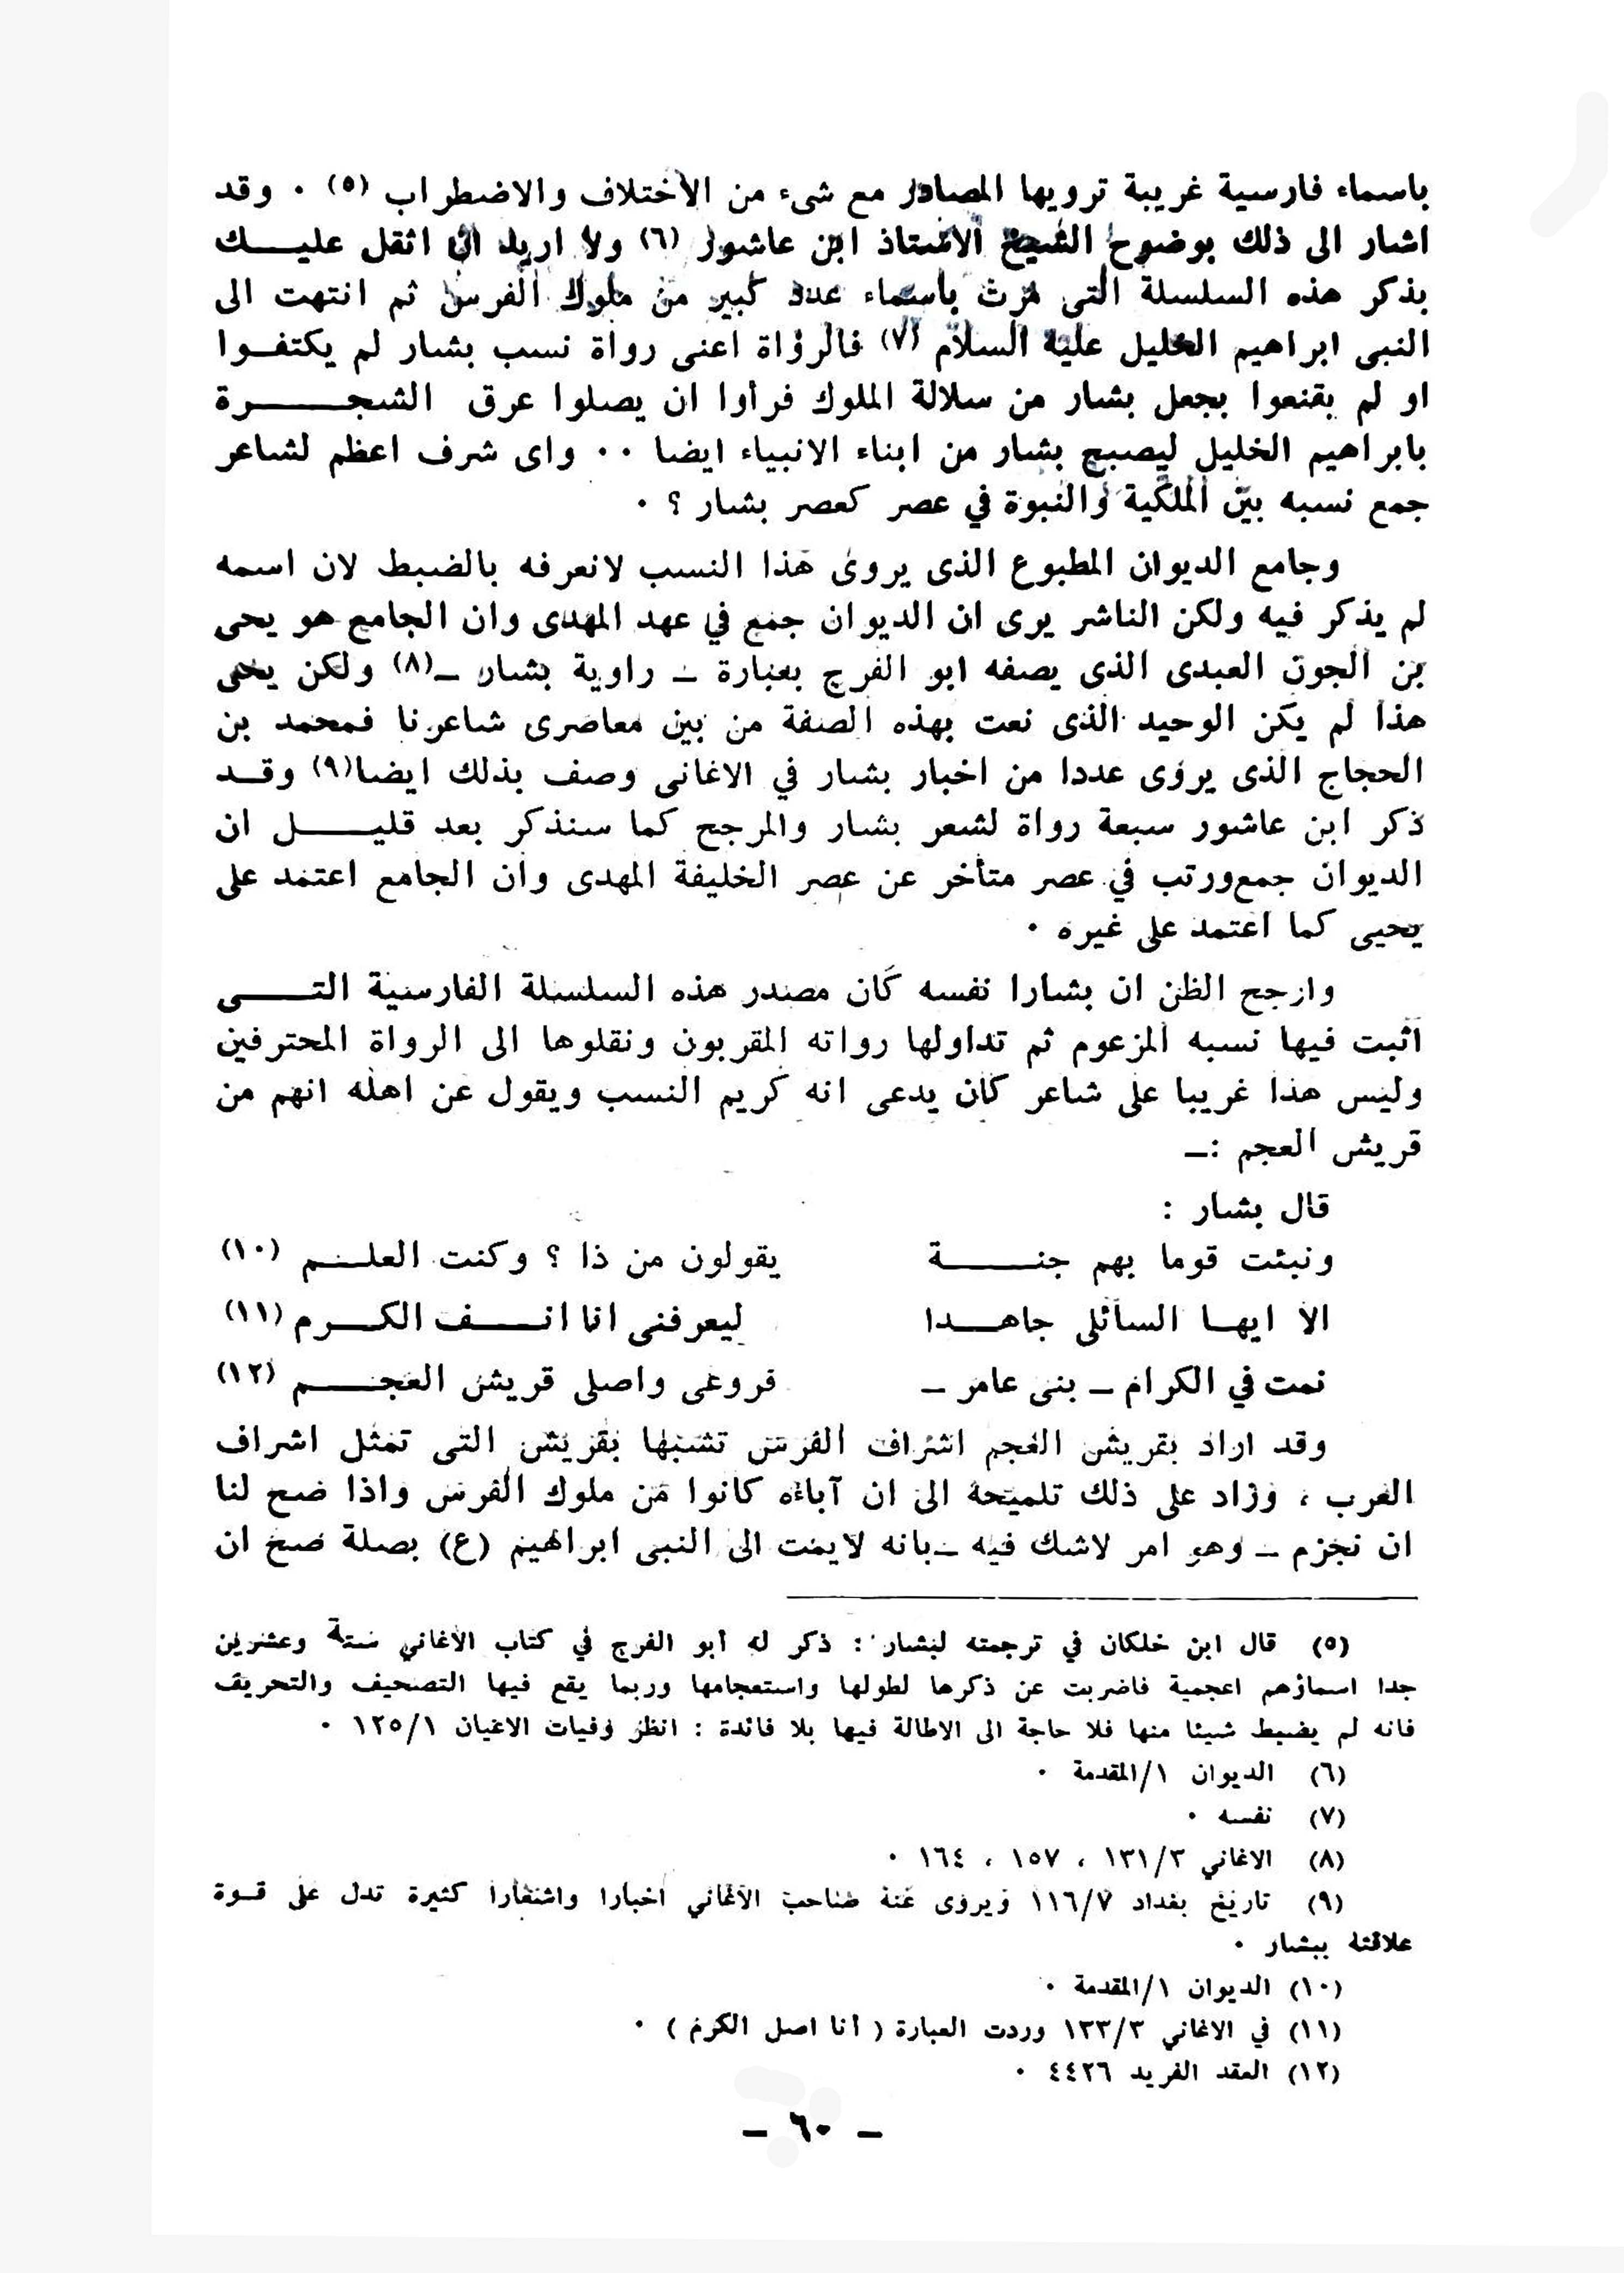 باسماء فارسية غريبة ترويها المصادر مع شىء من الاختلاف والاضطراب (٥) ٠ وقد
اشار الى ذلك بوضوح الشيخ الاستاذ ابن عاشور (٦) ولا اريد ان اثقل عليك
بذكر هذه السلسلة التى مرت باسماء عدد كبير من ملوك الفرس ثم انتهت الى
النبى ابراهيم الخليل عليه السلام (٧) فالرواة اعنى رواة نسب بشار لم يكتفوا
او لم يقنعوا بجعل بشار من سلالة الملوك فرأوا ان يصلوا عرق الشجرة
بابراهيم الخليل ليصبح بشار من ابناء الانبياء ايضا ٠٠ واى شرف اعظم لشاعر
جمع نسبه بين الملكية والنبوة في عصر كعصر بشار ؟ ٠
وجامع الديوان المطبوع الذى يروى هذا النسب لانعرفه بالضبط لان اسمه
لم يذكر فيه ولكن الناشر يرى ان الديوان جمع في عهد المهدى وان الجامع هو يحى
بن الجون العبدى الذى يصفه ابو الفرج بعبارة ــ راوية بشار ــ(٨) ولكن يحى
هذا لم يكن الوحيد الذى نعت بهذه الصفة من بين معاصرى شاعرنا فمحمد بن
الحجاج الذى يروى عددا من اخبار بشار في الاغانى وصف بذلك ايضا(٩) وقد
ذكر ابن عاشور سبعة رواة لشعر بشار والمرجح كما سنذكر بعد قليل ان
الديوان جمع ورتب في عصر متأخر عن عصر الخليفة المهدى وان الجامع اعتمد على
يحيى كما اعتمد على غيره ٠
وارجح الظن ان بشارا نفسه كان مصدر هذه السلسلة الفارسية التى
اثبت فيها نسبه المزعوم ثم تداولها رواته المقربون ونقلوها الى الرواة المحترفين
وليس هذا غريبا على شاعر كان يدعى انه كريم النسب ويقول عن اهله انهم من
قريش العجم :ــ
قال بشار :
ونبئت قوما بهم جنة يقولون من ذا ؟ وكنت العلم (١٠)
الا ايها السائلى جاهدا ليعرفنى انا انف الكرم (١١)
نمت في الكرام ــ بنى عامر ــ فروعى واصلى قريش العجم (١٢)
وقد اراد بقريش العجم اشراف الفرس تشبها بقريش التى تمثل اشراف
العرب ، وزاد على ذلك تلميحة الى ان آباءه كانوا من ملوك الفرس واذا صح لنا
ان نجزم ــ وهو امر لاشك فيه ــ بانه لايمت الى النبى ابراهيم (ع) بصلة صح ان
(٥) قال ابن خلكان في ترجمته لبشار : ذكر له أبو الفرج في كتاب الأغاني ستة وعشرين
جدا اسماؤهم اعجمية فاضربت عن ذكرها لطولها واستعجامها وربما يقع فيها التصحيف والتحريف
فانه لم يضبط شيئا منها فلا حاجة الى الاطالة فيها بلا فائدة : انظر وفيات الاعيان ١٢٥/١ ٠
(٦) الديوان ١/المقدمة ٠
(٧) نفسه ٠
(٨) الاغاني ١٣١/٣ ، ١٥٧ ، ١٦٤ ٠
(٩) تاريخ بغداد ١١٦/٧ ويروى عنه صاحب الأغاني اخبارا واشعارا كثيرة تدل على قوة
علاقته ببشار ٠
(١٠) الديوان ١/المقدمة ٠
(١١) في الاغاني ١٣٣/٣ وردت العبارة ( أنا اصل الكرم ) ٠
(١٢) العقد الفريد ٤٤٢٦ ٠
ــ ٦٠ ــ